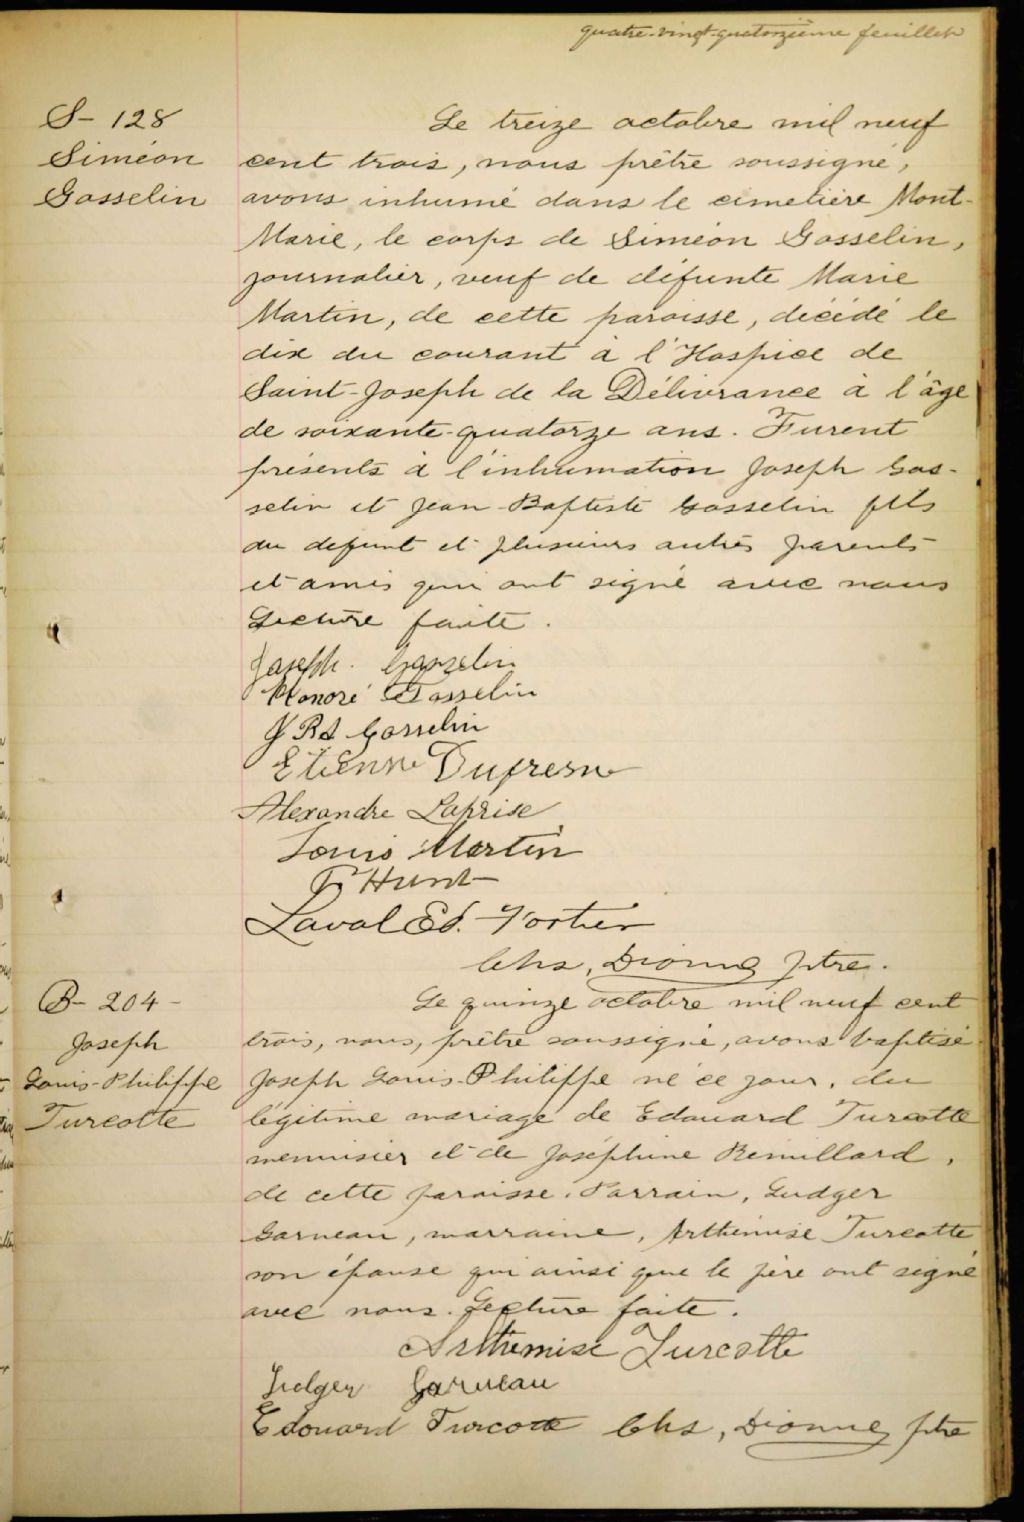 quatre-vingt-quatorzième feuillet
S- 128
Siméon
Gosselin
Le treize octobre mil neuf
cent trois, nous prêtre soussigné,
avons inhumé dans le cimetière Mont-
Marie, le corps de Siméon Gosselin,
journalier, veuf de défunte Marie
Martin, de cette paroisse, décédé le
dix du courant à l'Hospice de
Saint-Joseph de la Délivrance à l'âge
de soixante-quatorze ans. Furent
présents à l'inhumation Joseph Gos-
selin et Jean-Baptiste Gosselin fils
du defunt et plusieurs autres parents
et amis qui ont signé avec nous
Lecture faite.
Joseph. Gosselin
Honoré Gosselin
J Bt Gosselin
Etienne Dufresne
Alexandre Laprise
Louis Martin
Hunt
Laval Ed. Fortier
Chs, Dionne ptre.
B- 204 -
Joseph
Louis-Philippe
Turcotte
Le quinze octobre mil neuf cent
trois, nous, prêtre soussigné, avons baptisé
Joseph Louis-Philippe né ce jour, du
légitime mariage de Edouard Turcotte
menuisier et de Joséphine Remillard,
de cette paroisse. Parrain, Ludger
Garneau, marraine, Arthémise Turcotte
son épouse qui ainsi que le père ont signé
avec nous. Lecture faite.
Arthémise Turcotte
Ludger Garneau
Edouard Turcotte Chs, Dionne ptre